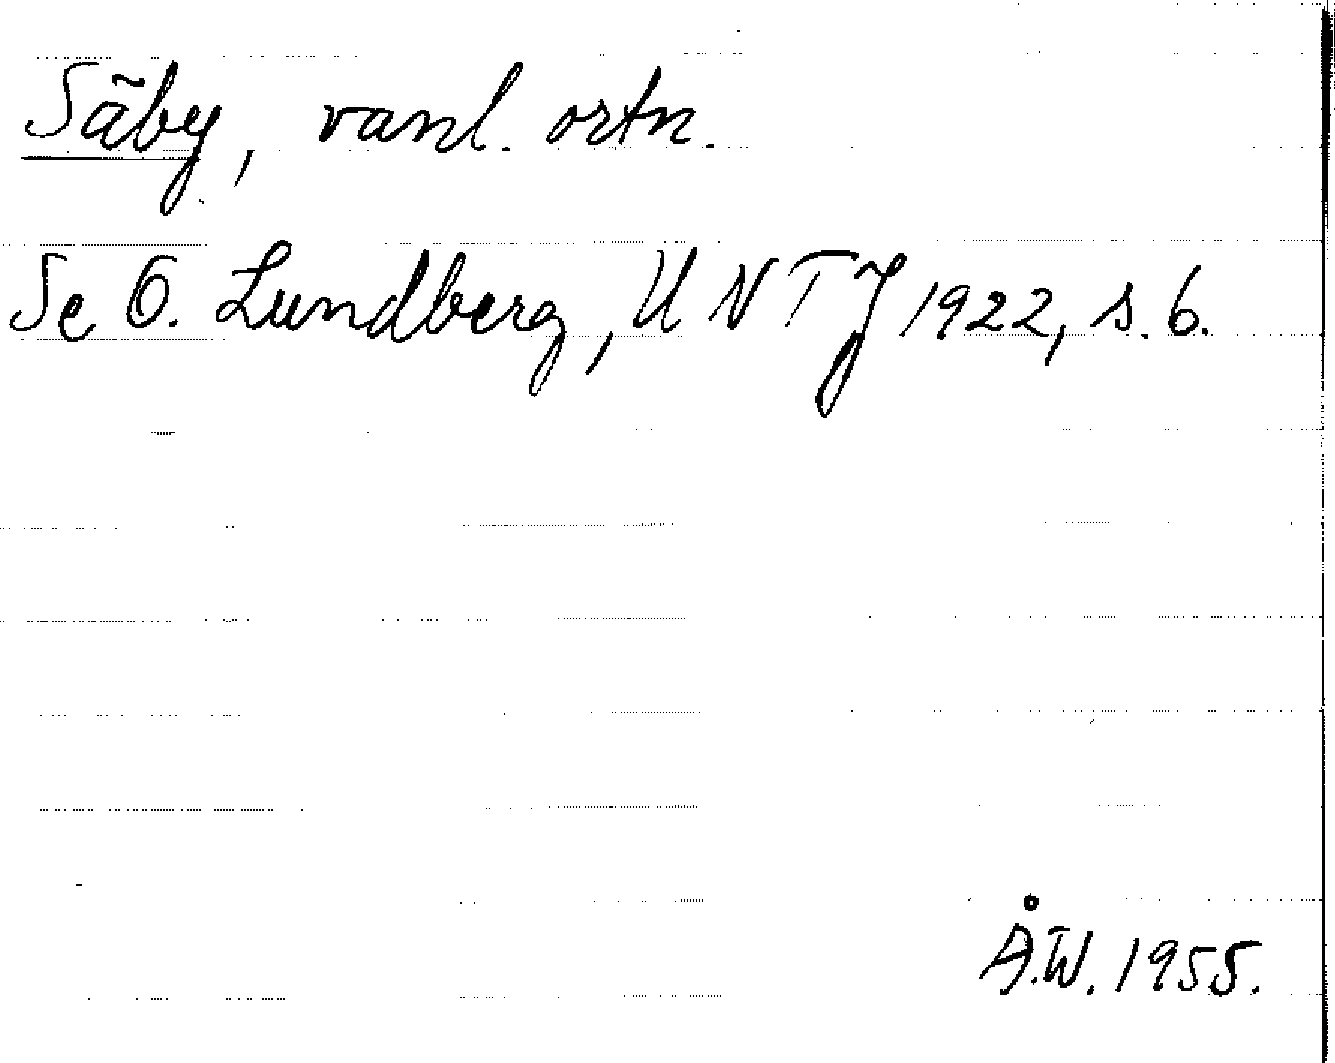 Säby, vanl. ortn.
Se O. Lundberg, UNTJ 1922, s. 6.
Å.W. 1955.